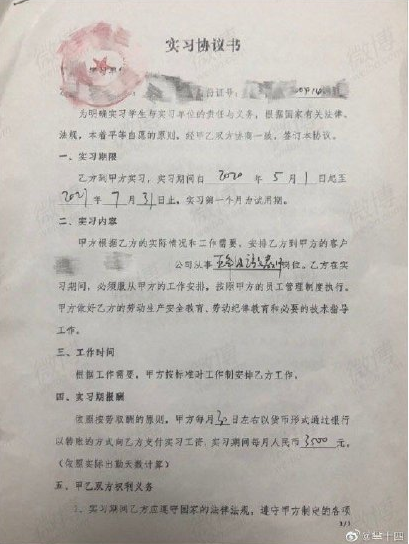 实习协议书
份证号:
为明确实习学生与实习单位的责任与义务，根据国家有关法律、
法规，本着平等自愿的原则。经甲乙双方协商一致，签订本协议。
一、实习期限
乙方到甲方实习，实习期间自 2020 年 5 月 1 日起至
2021 年 7 月 31 日止。实习第一个月为试用期。
二、实习内容
甲方根据乙方的实际情况和工作需要，安排乙方到甲方的客户
公司从事 岗位。乙方在实
习期间，必须服从甲方的工作安排。按照甲方的员工管理制度执行。
甲方做好乙方的劳动生产安全教育、劳动纪律教育和必要的技术指导
工作。
三、工作时间
根据工作需要，甲方按标准时工作制安排乙方工作。
四、实习期报酬
依照按劳取酬的原则。甲方每月 30 日左右以货币形式通过银行
以转账的方式向乙方支付实习工资，实习期间每月人民币 3500 元。
(依照实际出勤天数计算)
五、甲乙双方权利义务
1、实习期间乙方应遵守国家的法律法规，遵守甲方制定的各项